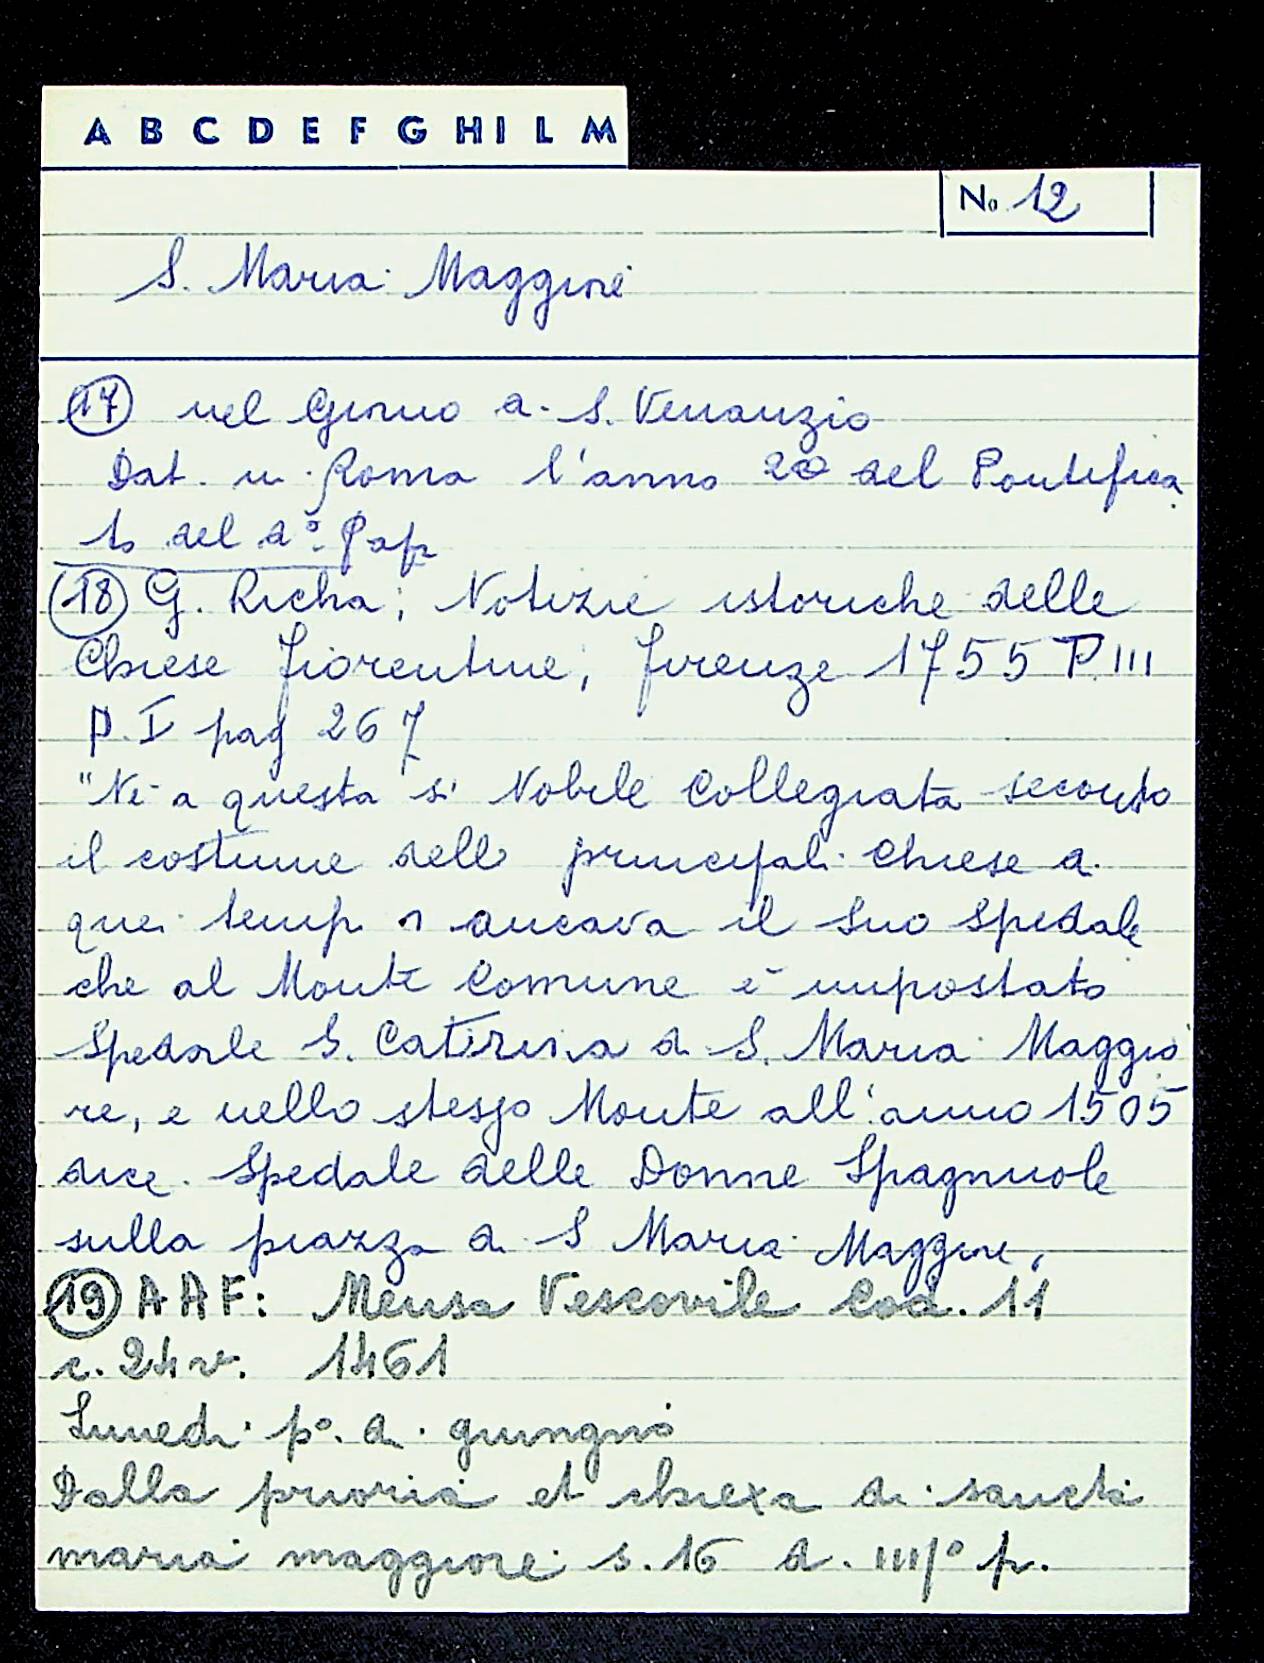 A B C D E F G H I L M
No. 12
S. Maria Maggiore
17 nel Giorno di S. Venanzio
Dat. in Roma l'anno 20 del Pontifica
to del d.o Pap
18 G. Richa, Notizie istoriche delle
Chiese fiorentine, firenze 1755 T. III
P. I pag 267
"Ne a questa sì Nobile Collegiata secondo
il costume delle principali Chiese di
quei temp mancava il suo Spedale
che al Monte Comune è impostato
Spedale S. Caterina di S. Maria Maggio
re, e nello stesso Monte all'anno 1505
dice Spedale delle Donne Spagnuole
sulla piazza di S Maria Maggiore,
19 AAF: Mensa Vescovile Cod. 11
c. 24 v. 1461
Lunedi p.o di giungno
Dalla prioria et chiexa di sancta
maria maggiore s. 16 d. IIIJ.o p.